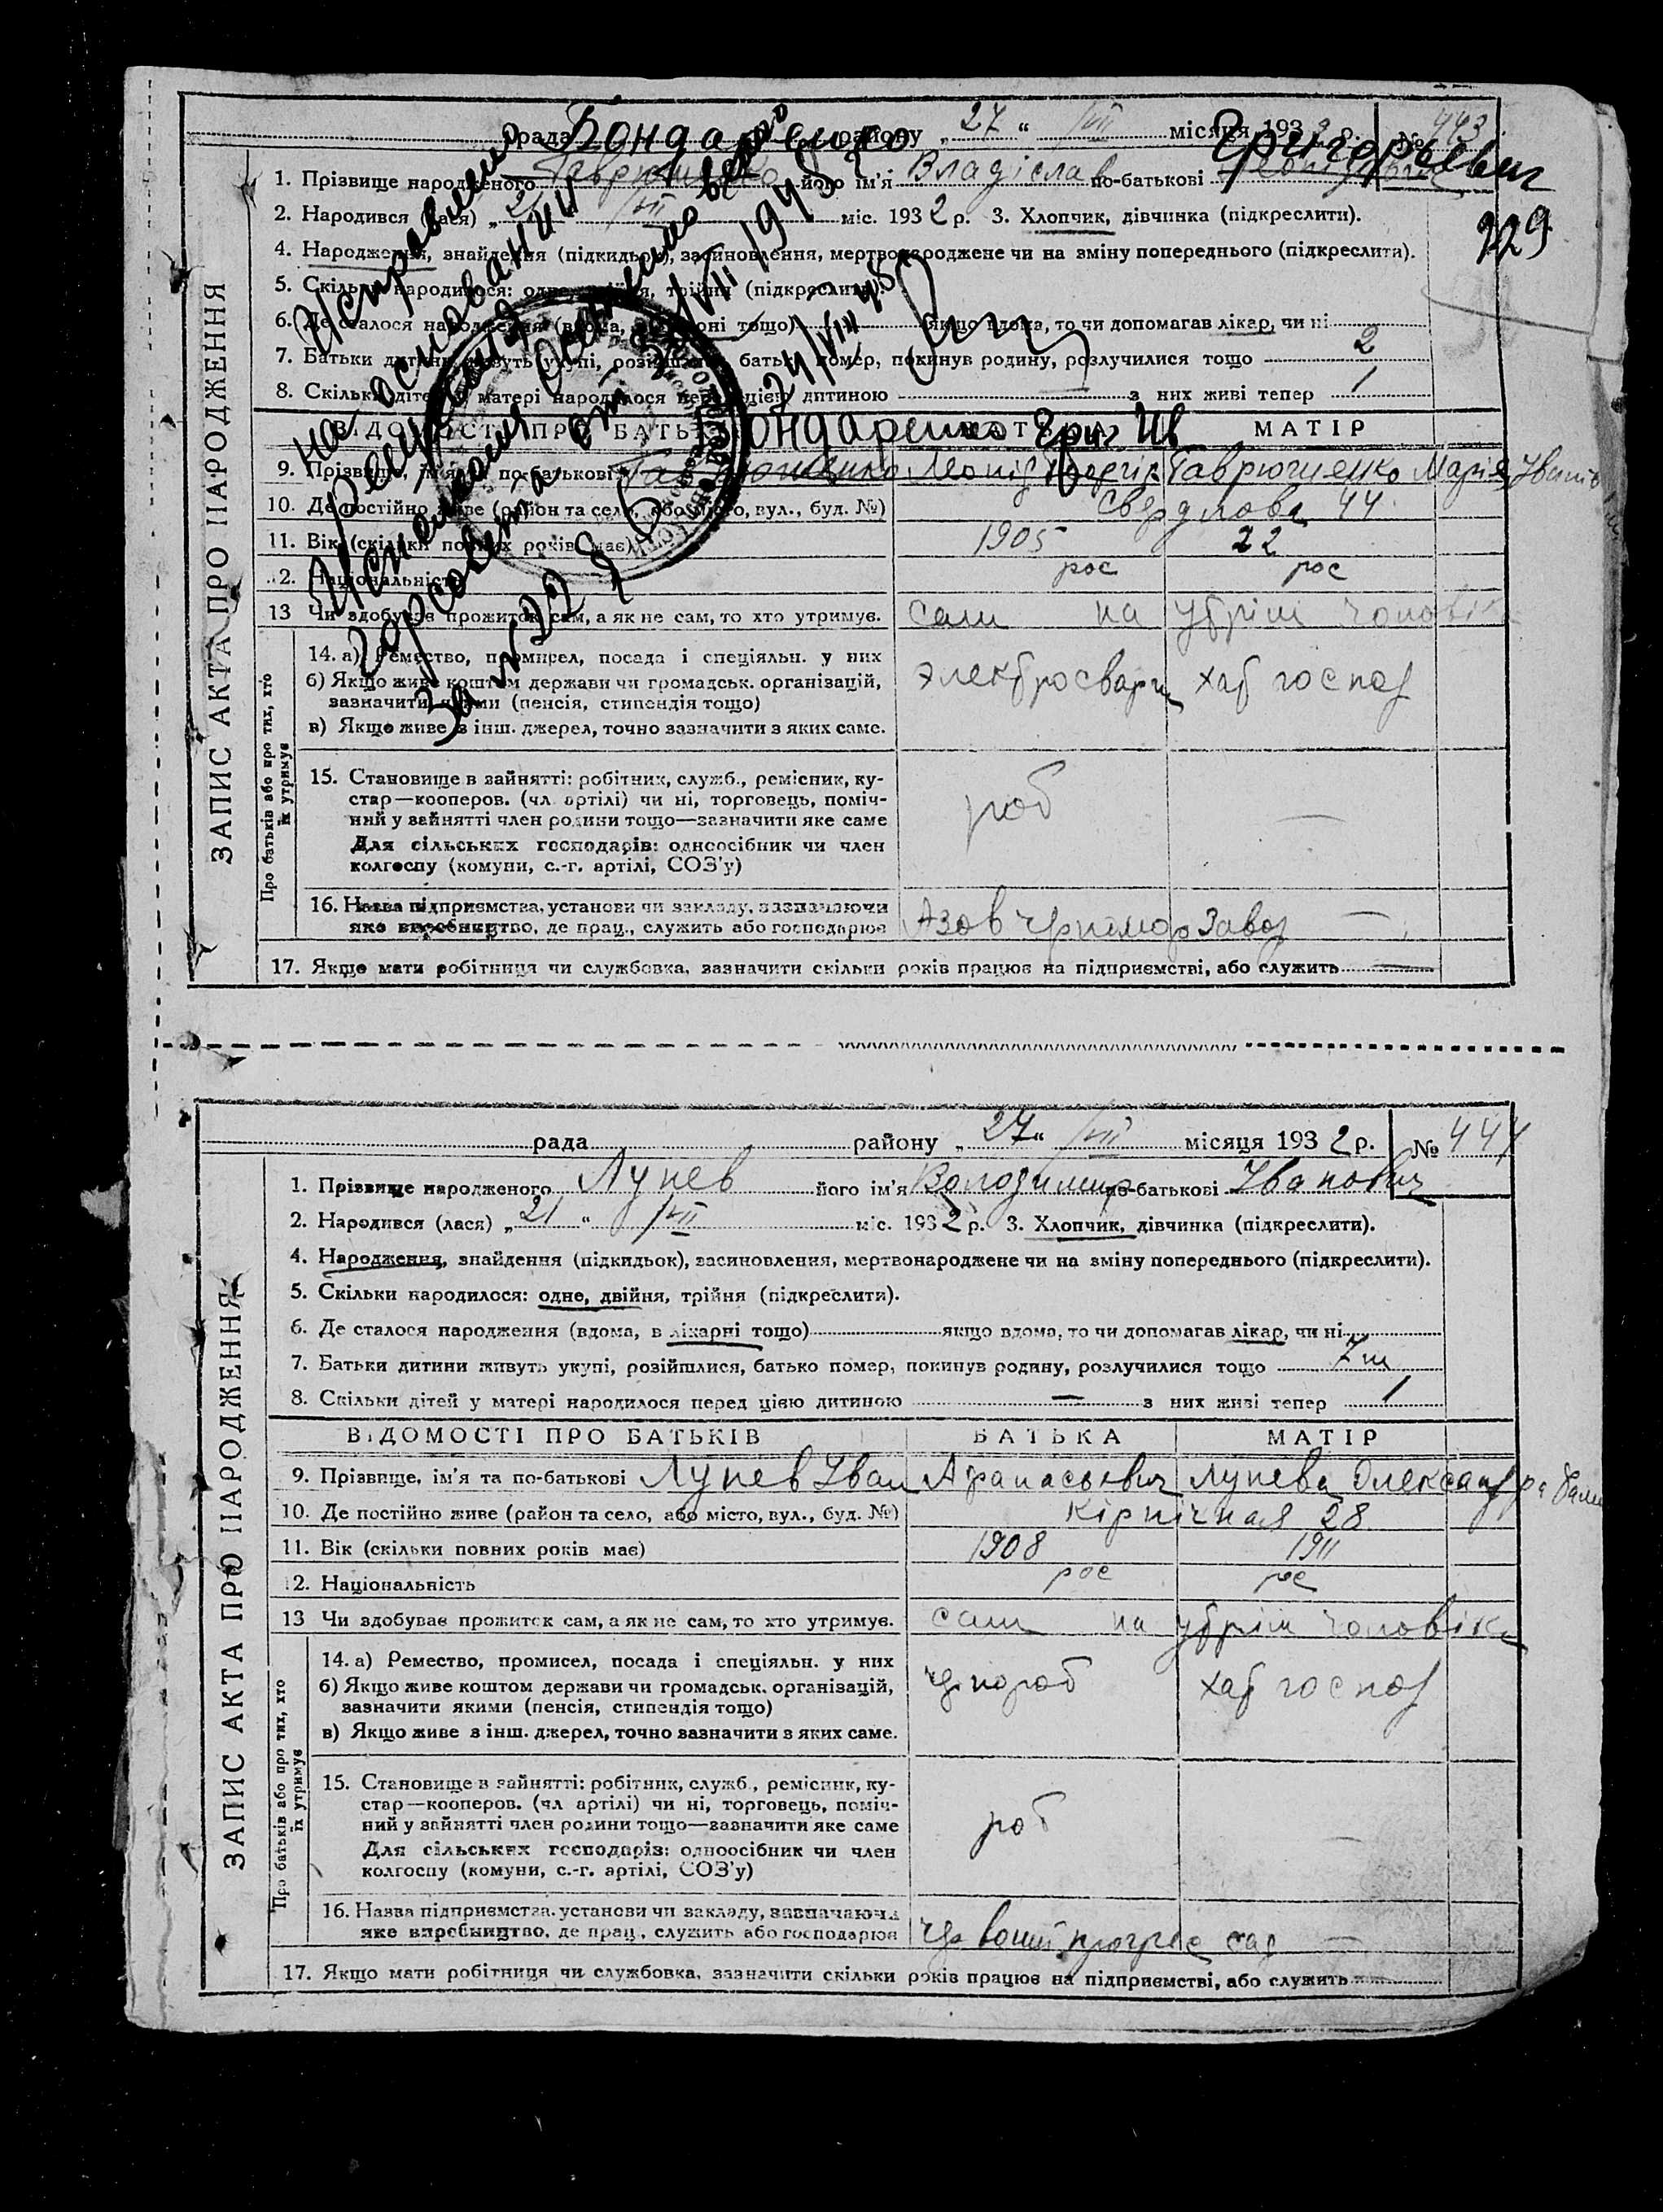 рада Бондаренко району „ 27 “ VII місяця 1932 р. № 443
1. Прізвище народженого Гаврюшенко його ім'я Владіслав по-батькові Григорьевич
229
2. Народився (лася) „ 21 VII міс. 1932 р. 3. Хлопчик, дівчинка (підкреслити).
4. Народження, знайдення (підкидьок), засиновлення, мертвонароджене чи на зміну попереднього (підкреслити).
5. Скільки народилося: одне, двійня, трійня (підкреслити).
6. Де сталося народження (вдома, в лікарні тощо) якщо вдома, то чи допомагав лікар, чи ні
7. Батьки дитини живуть укупі, розійшлися, батько помер, покинув родину, розлучилися тощо 2
8. Скільки дітей у матері народилося перед цією дитиною — з них живі тепер 1
Исправлено
на основании
решения
Исполкома
горсовета от
за № 229
24/VIII 45
ВІДОМОСТІ ПРО БАТЬКІВ БАТЬКА МАТІР
Бондаренко Григ Ив
9. Прізвище, ім'я та по-батькові Гаврюшенко Леонід Георгів Гаврюшенко Марія Іванів
10. Де постійно живе (район та село, або місто, вул., буд. №) Свердлова 44
11. Вік (скільки повних років має) 1905 22
12. Національність рос рос
13 Чи здобуває прожиток сам, а як не сам, то хто утримує. сам на утрім чоловіка
ЗАПИС АКТА ПРО НАРОДЖЕННЯ
Про батьків або про тих, хто їх утримує
14. а) Ремество, промисел, посада і спеціяльн. у них
б) Якщо живе коштом держави чи громадськ. організацій,
зазначити якими (пенсія, стипендія тощо)
в) Якщо живе з інш. джерел, точно зазначити з яких саме.
электросварщ хат господ
15. Становище в зайнятті: робітник, служб., ремісник, ку-
стар—кооперов. (чл артілі) чи ні, торговець, поміч-
ний у зайнятті член родини тощо—зазначити яке саме
Для сільських господарів: одноосібник чи член
колгоспу (комуни, с.-г. артілі, СОЗ'у)
роб —
16. Назва підприємства, установи чи закладу, зазначаючи
яке виробництво, де прац., служить або господарює
Азов Чрномор Завод —
17. Якщо мати робітниця чи службовка, зазначити скільки років працює на підприємстві, або служить —
рада району „ 27 “ VII місяця 1932 р. № 444
1. Прізвище народженого Лунев його ім'я Володимир по-батькові Іванович
2. Народився (лася) „ 21 “ VII міс. 1932 р. 3. Хлопчик, дівчинка (підкреслити).
4. Народження, знайдення (підкидьок), засиновлення, мертвонароджене чи на зміну попереднього (підкреслити).
5. Скільки народилося: одне, двійня, трійня (підкреслити).
6. Де сталося народження (вдома, в лікарні тощо) якщо вдома, то чи допомагав лікар, чи ні
7. Батьки дитини живуть укупі, розійшлися, батько помер, покинув родину, розлучилися тощо
8. Скільки дітей у матері народилося перед цією дитиною — з них живі тепер 1
ВІДОМОСТІ ПРО БАТЬКІВ БАТЬКА МАТІР
9. Прізвище, ім'я та по-батькові Лунев Іван Афанасьевич Лунева Олександра
10. Де постійно живе (район та село, або місто, вул., буд. №) Кірпічная 28
11. Вік (скільки повних років має) 1908 1911
12. Національність рос рос
13 Чи здобуває прожиток сам, а як не сам, то хто утримує. сам на утрім чоловіка
ЗАПИС АКТА ПРО НАРОДЖЕННЯ
Про батьків або про тих, хто їх утримує
14. а) Ремество, промисел, посада і спеціяльн. у них
б) Якщо живе коштом держави чи громадськ. організацій,
зазначити якими (пенсія, стипендія тощо)
в) Якщо живе з інш. джерел, точно зазначити з яких саме.
чрнороб хат господ
15. Становище в зайнятті: робітник, служб., ремісник, ку-
стар—кооперов. (чл артілі) чи ні, торговець, поміч-
ний у зайнятті член родини тощо—зазначити яке саме
Для сільських господарів: одноосібник чи член
колгоспу (комуни, с.-г. артілі, СОЗ'у)
роб —
16. Назва підприємства, установи чи закладу, зазначаючи
яке виробництво, де прац., служить або господарює
Червоний прогрес —
17. Якщо мати робітниця чи службовка, зазначити скільки років працює на підприємстві, або служить